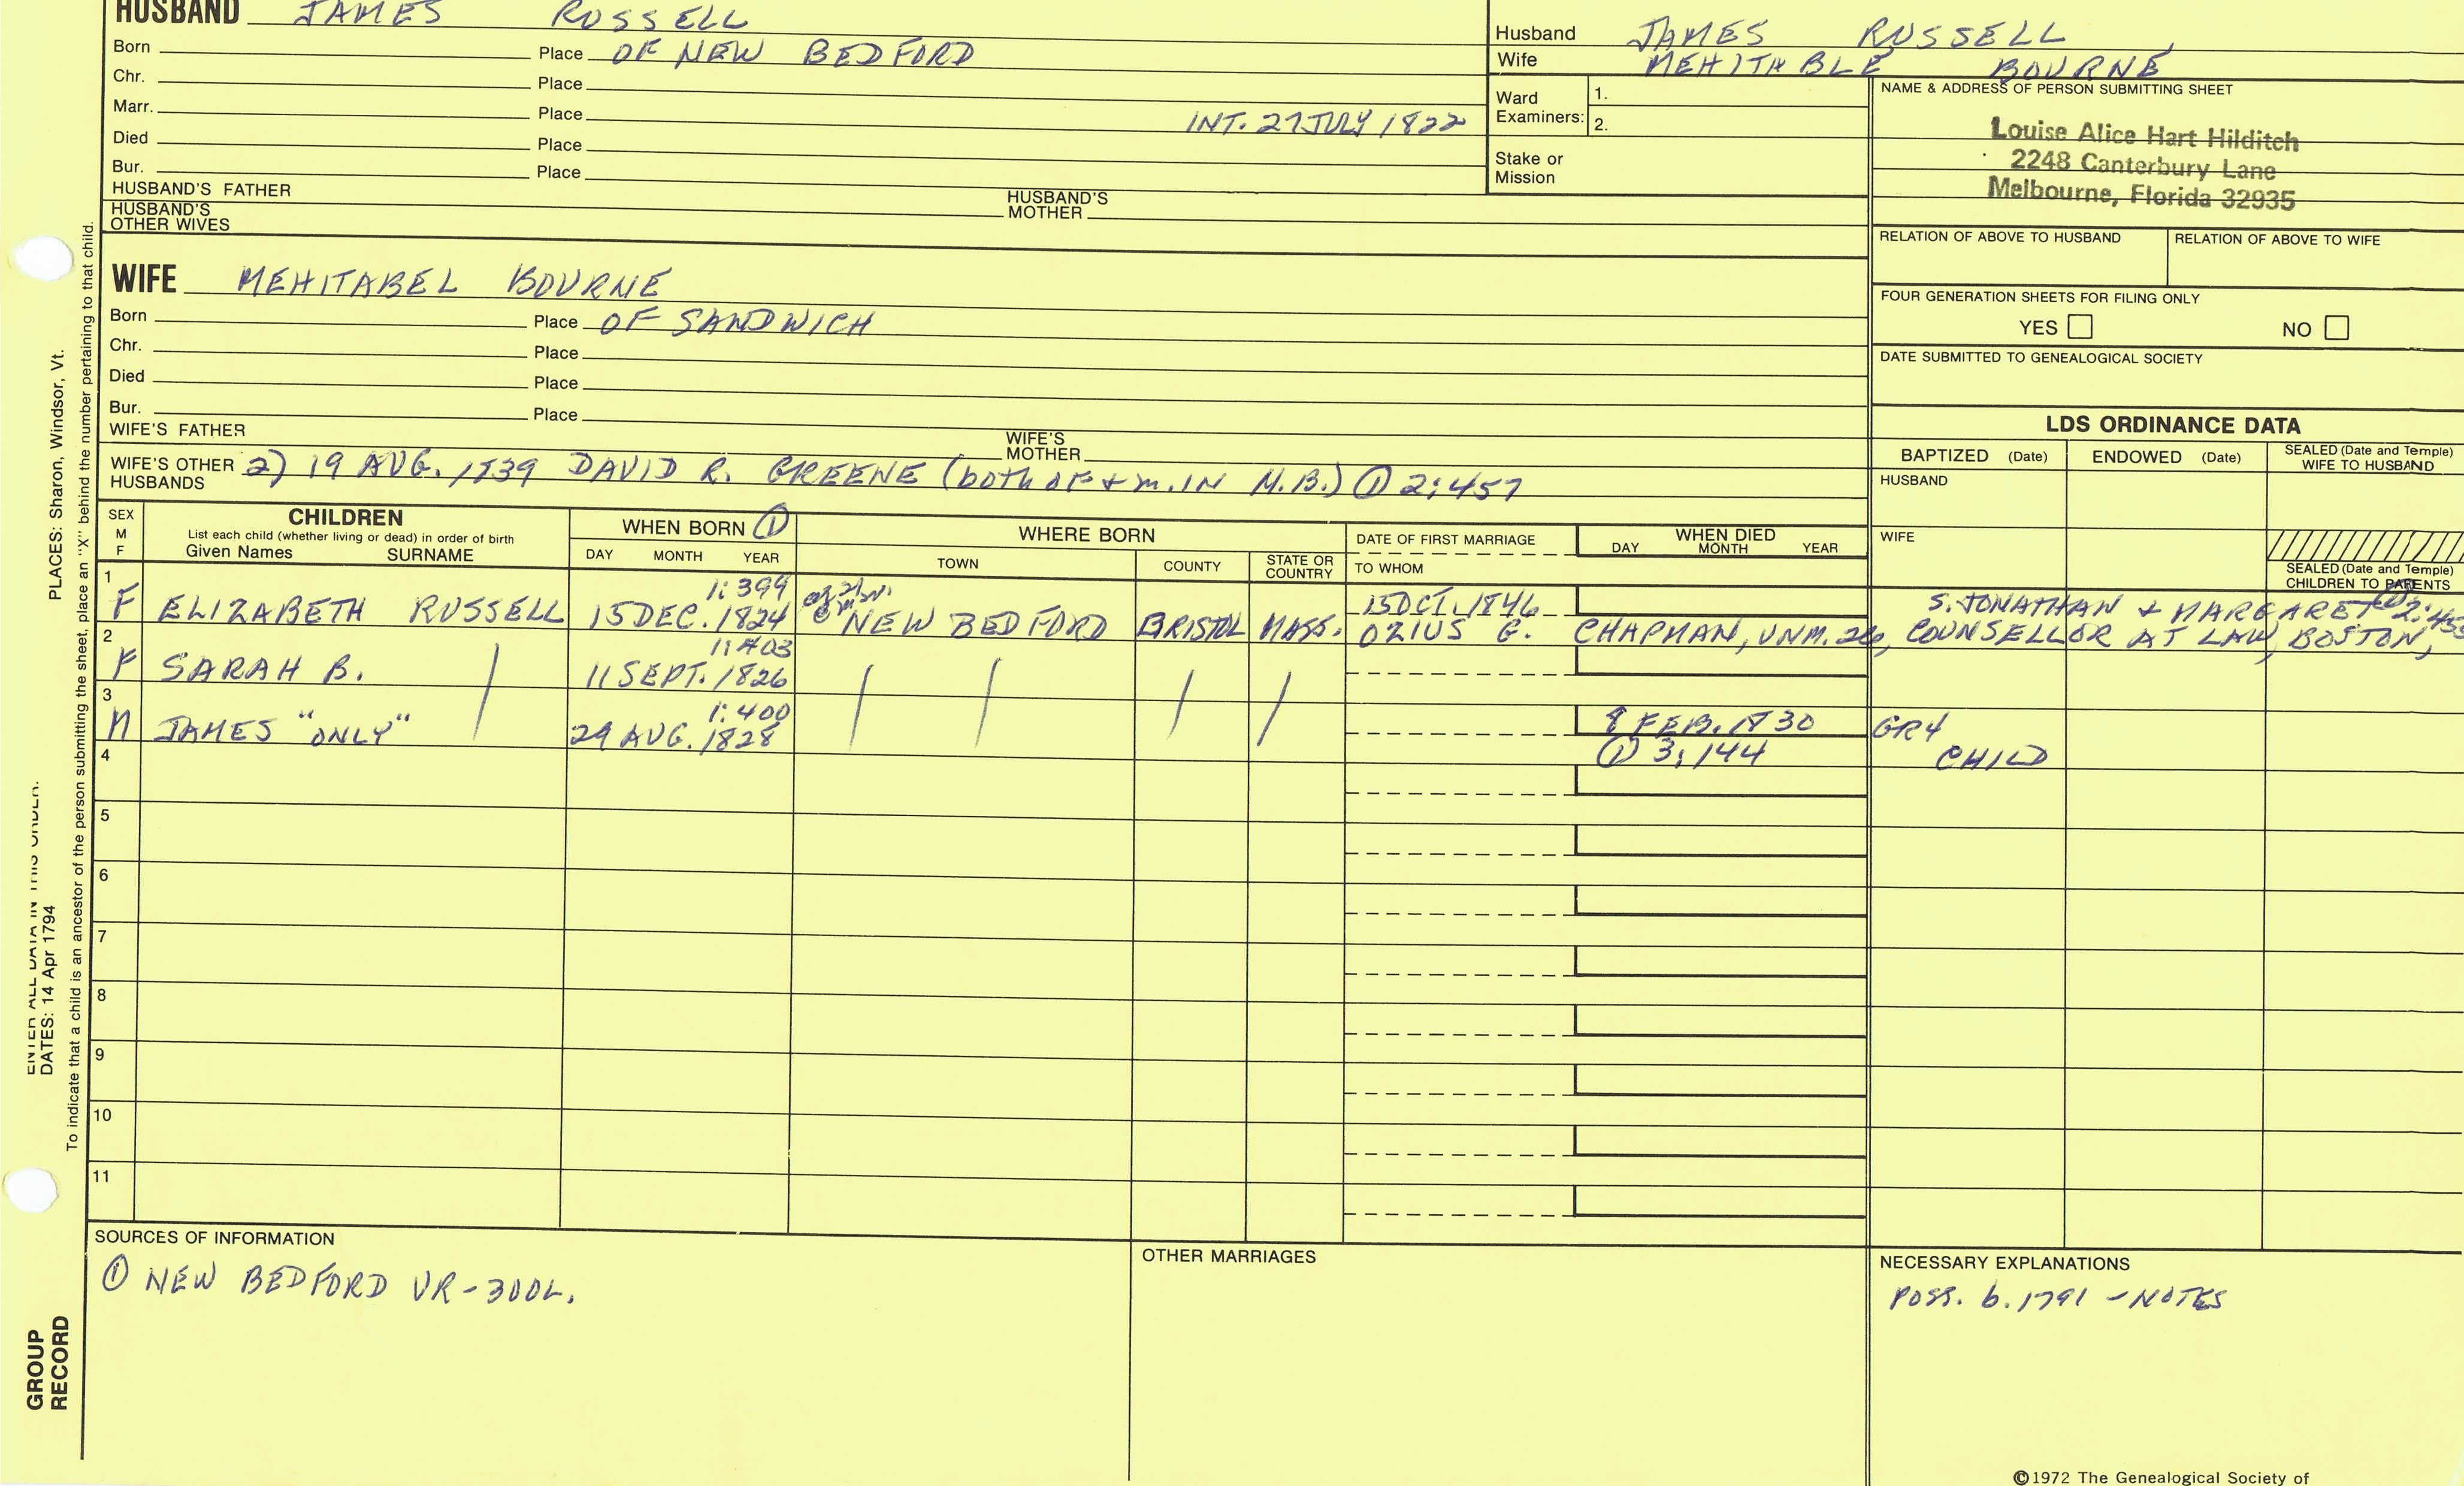 HUSBAND JAMES RUSSELL
Born Place OF NEW BEDFORD
Chr. Place
Marr. Place INT. 27 JULY 1822
Died Place
Bur. Place
HUSBAND'S FATHER HUSBAND'S MOTHER
HUSBAND'S OTHER WIVES
Husband JAMES RUSSELL
Wife MEHITABLE BOURNE
Ward Examiners: 1.
2.
Stake or Mission
NAME & ADDRESS OF PERSON SUBMITTING SHEET
Louise Alice Hart Hilditch
2248 Canterbury Lane
Melbourne, Florida 32935
RELATION OF ABOVE TO HUSBAND RELATION OF ABOVE TO WIFE
FOUR GENERATION SHEETS FOR FILING ONLY
YES NO
DATE SUBMITTED TO GENEALOGICAL SOCIETY
WIFE MEHITABEL BOURNE
Born Place OF SANDWICH
Chr. Place
Died Place
Bur. Place
WIFE'S FATHER WIFE'S MOTHER
WIFE'S OTHER HUSBANDS 2) 19 AUG. 1839 DAVID R. GREENE (both OF + m. IN N.B.) ① 2:457
LDS ORDINANCE DATA
BAPTIZED (Date) ENDOWED (Date) SEALED (Date and Temple) WIFE TO HUSBAND
HUSBAND
WIFE
SEALED (Date and Temple) CHILDREN TO PARENTS
SEX M F
CHILDREN
List each child (whether living or dead) in order of birth
Given Names SURNAME
WHEN BORN ①
DAY MONTH YEAR
WHERE BORN
TOWN COUNTY STATE OR COUNTRY
DATE OF FIRST MARRIAGE
TO WHOM
WHEN DIED
DAY MONTH YEAR
1 1:399 15 OCT. 1846 S. JONATHAN + MARGARET
F ELIZABETH RUSSELL 15 DEC. 1824 NEW BEDFORD BRISTOL MASS. OZIUS G. CHAPMAN, UNM. 26, COUNSELLOR AT LAW, BOSTON,
2 1:403
F SARAH B. 11 SEPT. 1826
3 1:400 8 FEB. 1830 GR4
M JAMES "ONLY" 29 AUG. 1828 ① 3:144 CHILD
4
5
6
7
8
9
10
11
SOURCES OF INFORMATION
① NEW BEDFORD VR-300L.
OTHER MARRIAGES
NECESSARY EXPLANATIONS
POSS. b. 1791 - NOTES
©1972 The Genealogical Society of
PLACES: Sharon, Windsor, Vt.
ENTER ALL DATA IN THIS ORDER:
DATES: 14 Apr 1794
To indicate that a child is an ancestor of the person submitting the sheet, place an "X" behind the number pertaining to that child.
GROUP
RECORD